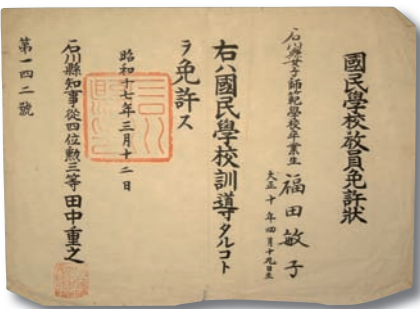 國民學校教員免許狀
石川縣女子師範學校卒業生
福田敏子
大正十年四月十九日生
右ハ國民學校訓導タルコト
ヲ免許ス
昭和十七年三月十二日
石川縣知事從四位勲三等田中重之
第一四二號